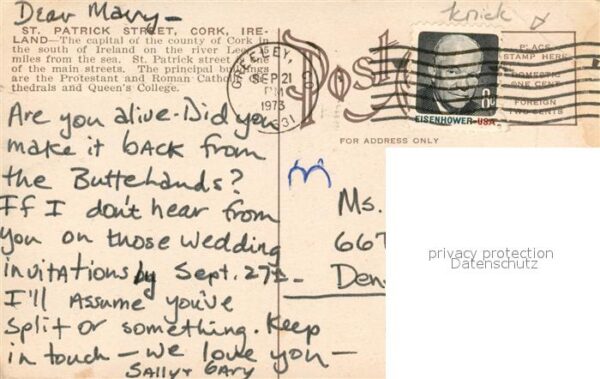 Dear Mary -
ST. PATRICK STREET, CORK, IRE-
LAND—The capital of the county of Cork in
the south of Ireland on the river Lee,
miles from the sea. St. Patrick street
one of the main streets. The principal buildings
are the Protestant and Roman Cath
thedrals and Queen's College.
GREELEY, CO
SEP 21
PM
1973
80631
Post
knick
PLACE
STAMP HERE
DOMESTIC
ONE CENT
FOREIGN
TWO CENTS
8c
EISENHOWER·USA
FOR ADDRESS ONLY
Are you alive - Did you
make it back from
the Buttehands?
If I don't hear from
you on those wedding
invitations by Sept. 27th -
I'll Assume you've
split or something. Keep
in touch — we love you —
Sally + Gary
Ms.
667
Den
privacy protection
Datenschutz